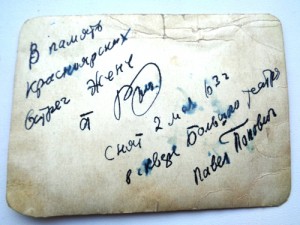 В память
Красноярских
встреч Жене
Снят 2 мая 63 г
в сквере Большого театра
Павел Попович